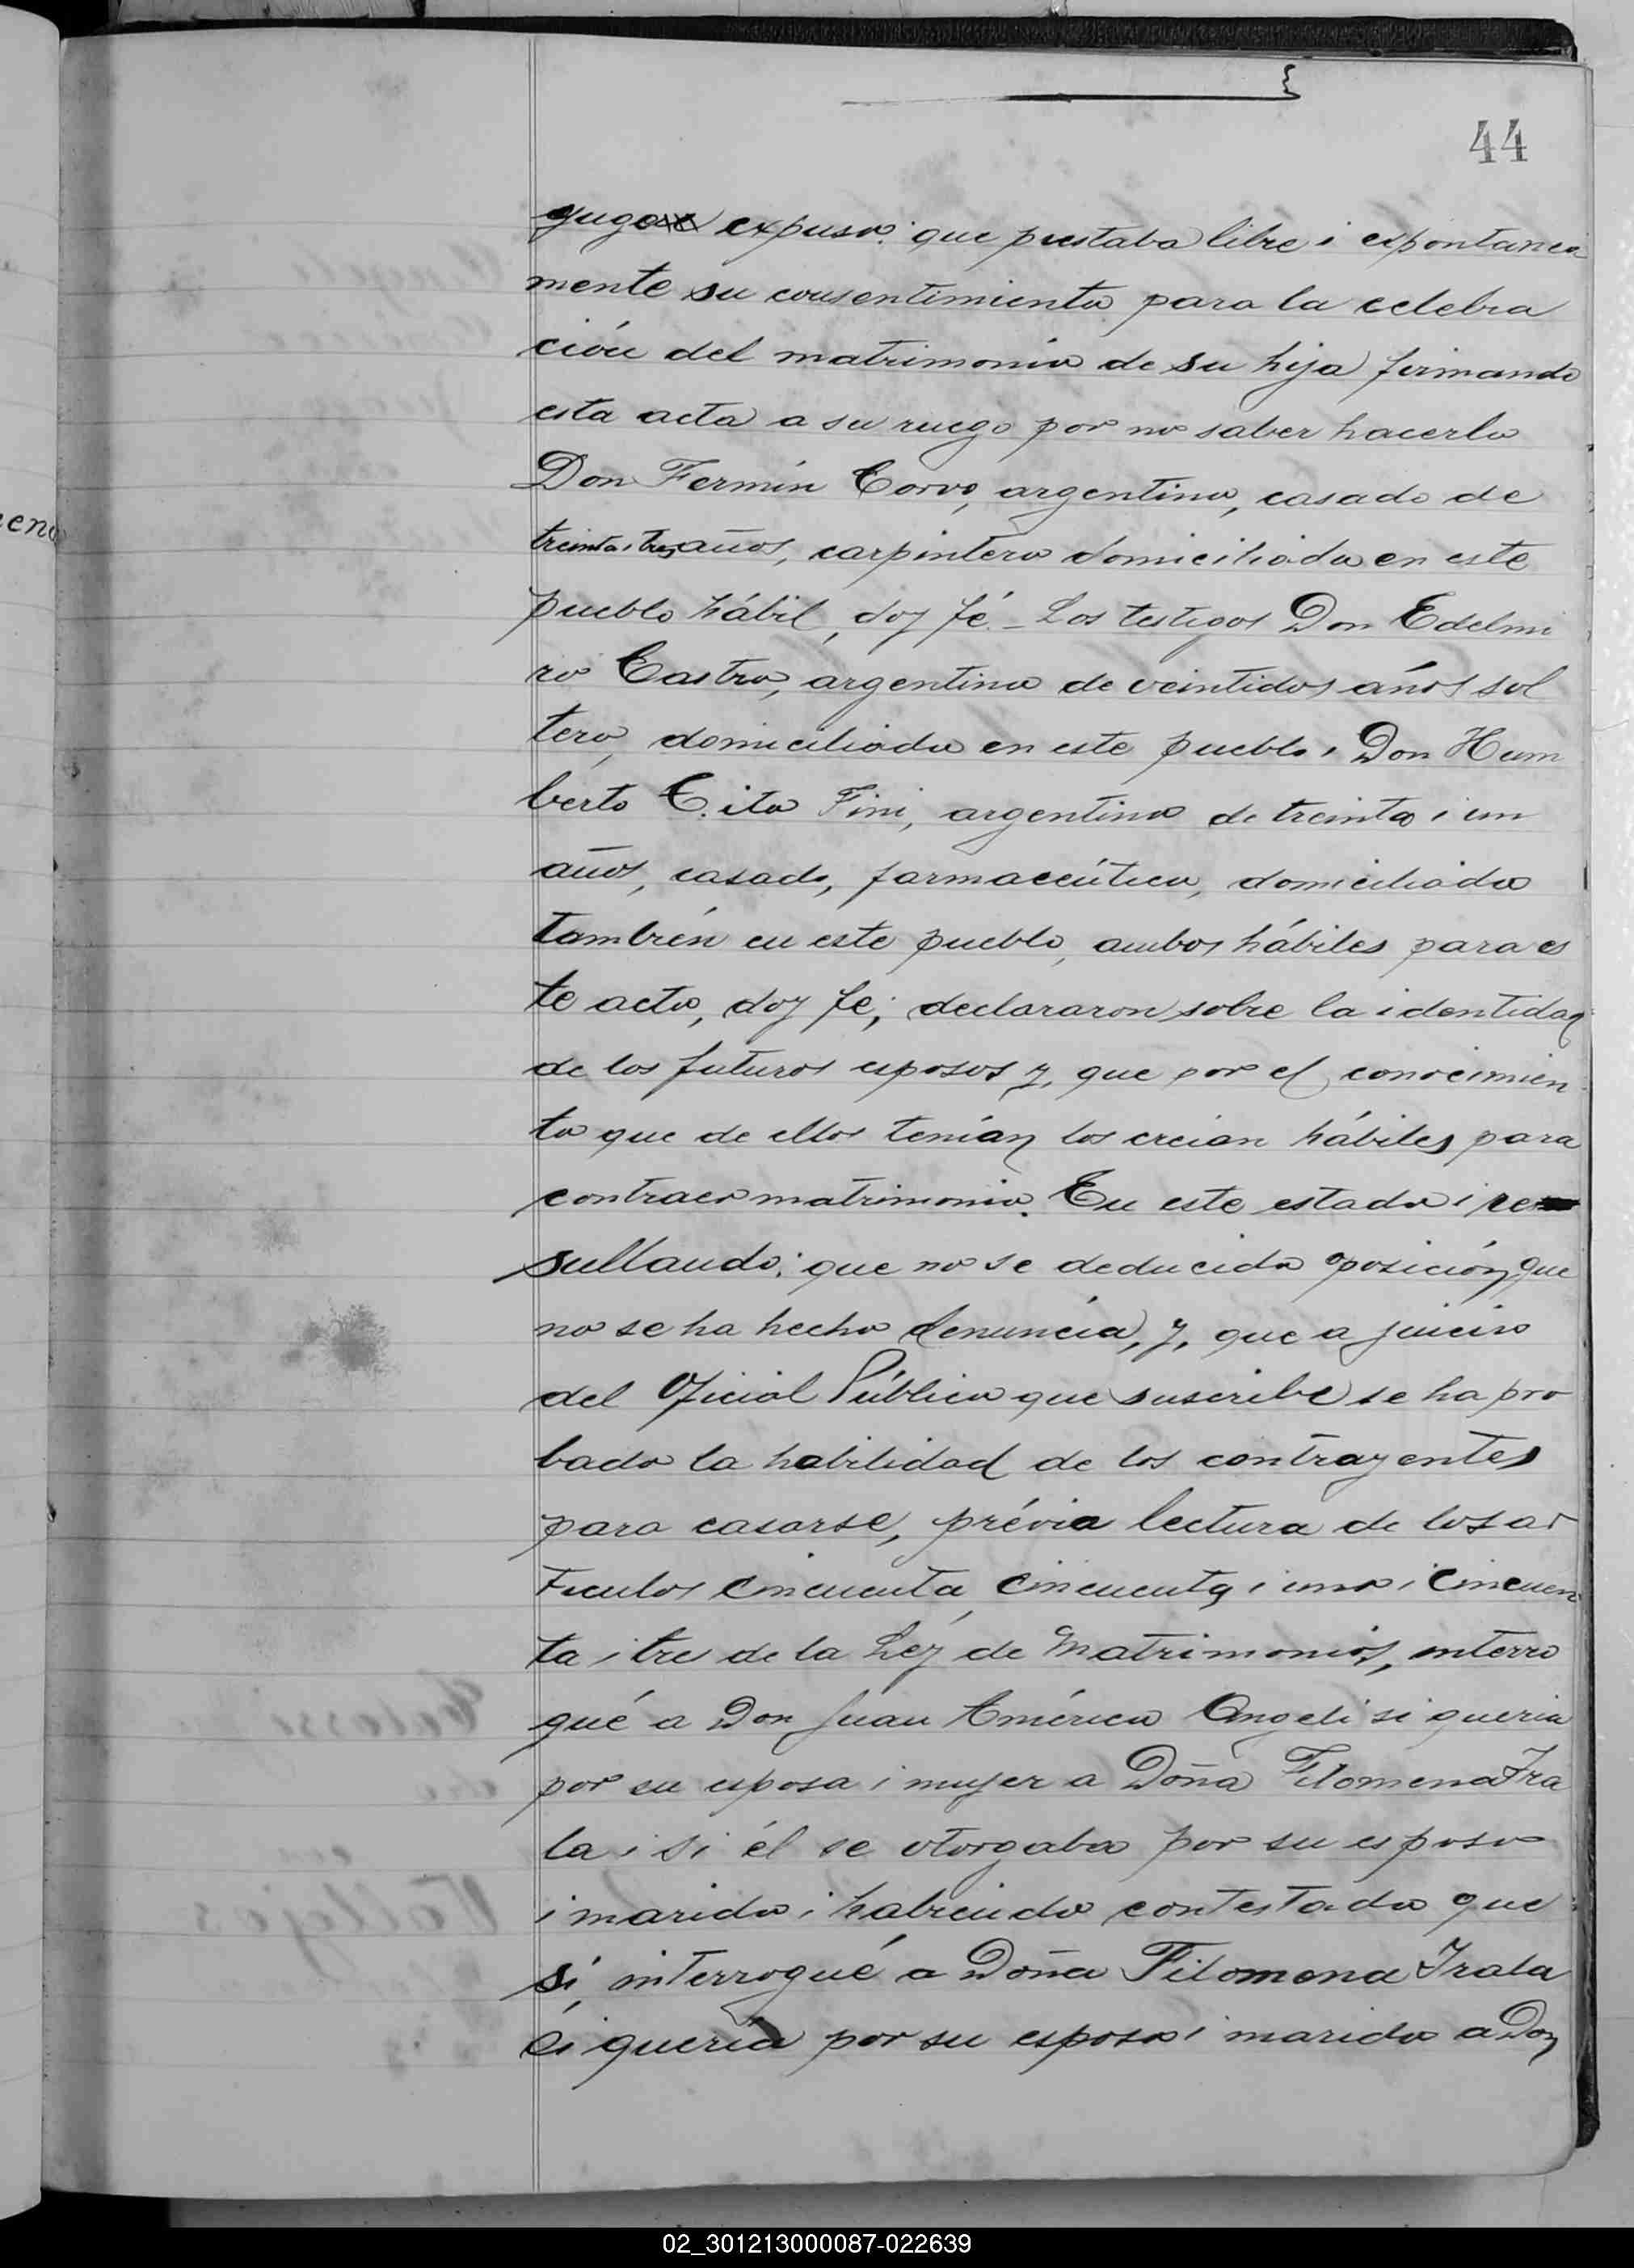 44
expuso: que prestaba libre i expontanea
mente su consentimiento para la celebra
ción del matrimonio de su hija firmando
esta acta a su ruego por no saber hacerlo
Don Fermín Corvo, argentino, casado de
treinta i tres años, carpintero domiciliado en este
pueblo hábil, doy fé. - Los testigos Don Edelmi
ro Castro, argentino de veintidos años sol
tero, domiciliado en este pueblo i Don Hum
berto Tito Fini, argentino de treinta i un
años, casado, farmaceútico, domiciliado
también en este pueblo, ambos hábiles para es
te acto, doy fe; declararon sobre la identidad
de los futuros esposos y, que por el conocimien
to que de ellos tenían los creian hábiles para
contraer matrimonio. En este estado i re
sultando: que no se deducido oposición, que
no se ha hecho denuncia, y, que a juicio
del Oficial Público que suscribe se ha pro
bado la habilidad de los contrayentes
para casarse, prévia lectura de los ar
ticulos cincuenta, cincuenta i uno i cincuen
ta i tres de la Ley de Matrimonios, interro
gué a Don Juan Américo Angeli si queria
por su esposa i mujer a Doña Filomena Ira
la i si él se otorgaba por su esposo
i marido i habiendo contestado que
si, interrogué a Doña Filomena Irala
si quería por su esposo i marido a Don
02_301213000087-022639